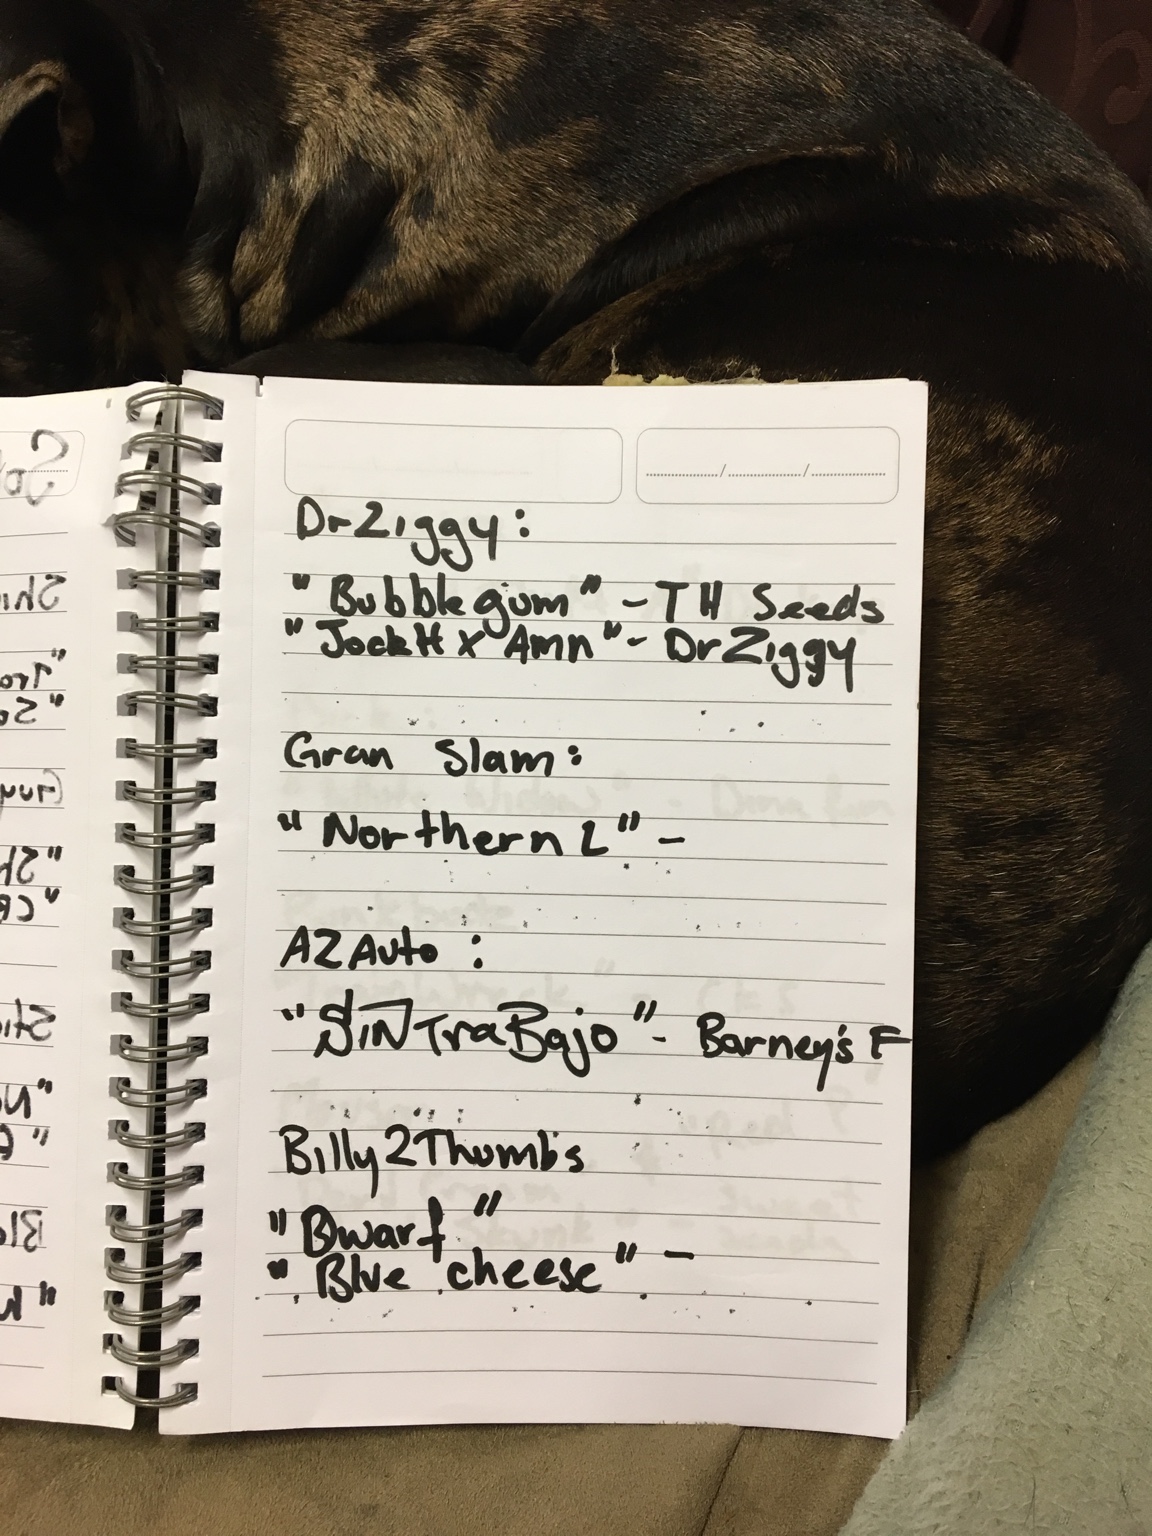 Dr Ziggy:
"Bubblegum" - TH Seeds
"JackH x Amn" - Dr Ziggy
Gran Slam:
"Northern L" -
AZ Auto:
"SIN TraBajo" - Barney's F
Billy2Thumbs
"Dwarf"
"Blue cheese" -